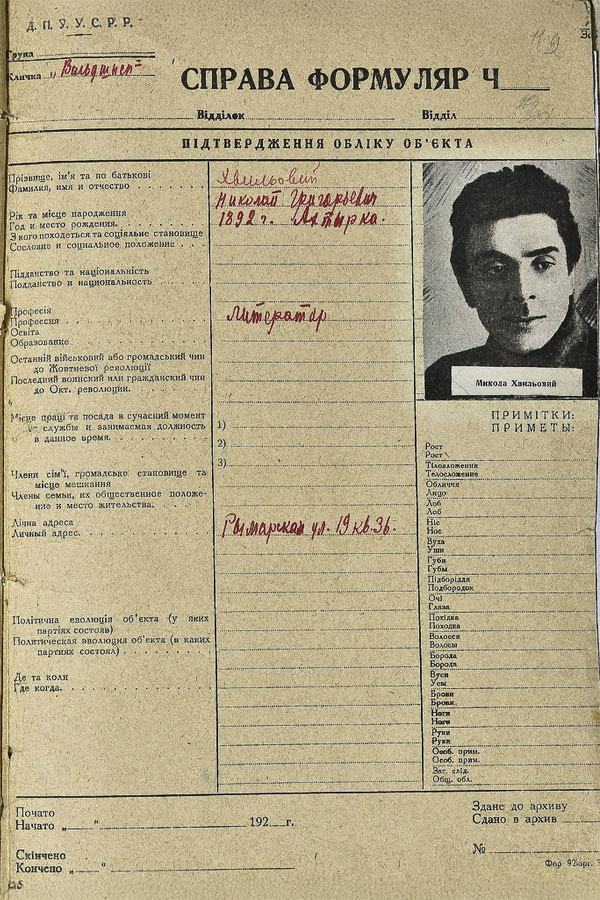 Д. П. У. У. С. Р. Р.
Група
Кличка „Вальдшнеп"
СПРАВА ФОРМУЛЯР Ч
Відділок Відділ
ПІДТВЕРДЖЕННЯ ОБЛІКУ ОБ'ЄКТА
Прізвище, ім'я та по батькові
Фамилия, имя и отчество
Хвильовий
Николай Григорьевич
Рік та місце народження
Год и место рождения.
1892 г. Ахтырка.
З кого походеться та соціяльне становище
Сословие и социальное положение
Підданство та національність
Подданство и национальность
Професія
Профессия
Литератор
Освіта
Образование
Останній військовий або громадський чин
до Жовтневої революції
Последний воинский или гражданский чин
до Окт. революции.
Місце праці та посада в сучасний момент
службы и занимаемая должность
в данное время.
1)
2)
3)
Члени сім'ї, громадське становище та
місце мешкання
Члены семьи, их общественное положе-
ние и место жительства.
Лічна адреса
Личный адрес.
Рымарская ул. 19 кв. 36.
Політична еволюція об'єкта (у яких
партіях состояв)
Политическая эволюция об'екта (в каких
партиях состоял)
Де та коли
Где когда.
Микола Хвильовий
ПРИМІТКИ:
ПРИМЕТЫ:
Рост
Рост
Тіловложення
Телосложение
Обличчя
Лицо
Лоб
Лоб
Ніс
Нос
Вуха
Уши
Губи
Губы
Підборіддя
Подбородок
Очі
Глаза
Похідка
Походка
Волосся
Волосы
Борода
Борода
Вуси
Усы
Брови
Брови
Ноги
Ноги
Руки
Руки
Особ. прим.
Особ. прим.
Заг. слід.
Общ. обл.
Почато
Начато „ “ 192 г.
Скінчено
Кончено „ “
Здане до архиву
Сдано в архив
№